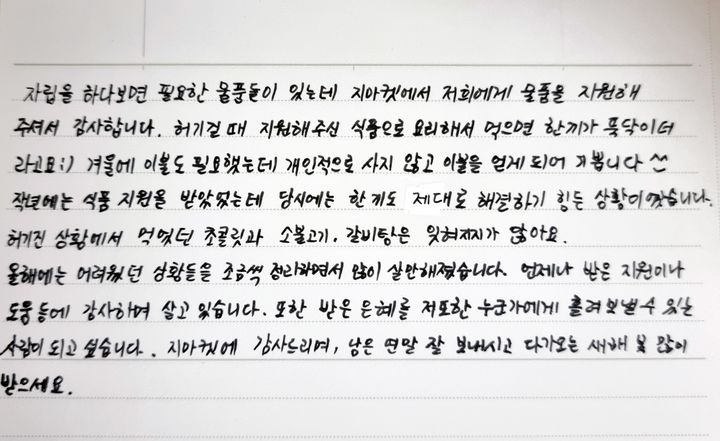 자립을 하다보면 필요한 물품들이 있는데 지마켓에서 저희에게 물품을 지원해
주셔서 감사합니다. 허기질 때 지원해주신 식품으로 요리해서 먹으면 한끼가 뚝딱이더
라고요:) 겨울에 이불도 필요했는데 개인적으로 사지 않고 이불을 얻게 되어 기쁩니다
작년에는 식품 지원을 받았었는데 당시에는 한끼도 제대로 해결하기 힘든 상황이었습니다.
허기진 상황에서 먹었던 초콜릿과 소불고기. 갈비탕은 잊혀지지가 않아요.
올해에는 어려웠던 상황들을 조금씩 정리하면서 많이 살만해졌습니다. 언제나 받은 지원이나
도움 등에 감사하며 살고 있습니다. 또한 받은 은혜를 저 또한 누군가에게 흘려 보낼 수 있는
사람이 되고 싶습니다. 지마켓에 감사드리며, 남은 연말 잘 보내시고 다가오는 새해 복 많이
받으세요.